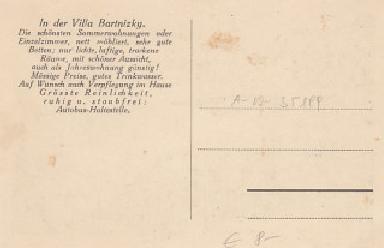 In der Villa Bartnizky.
Die schönsten Sommerwohnungen oder
Einzelzimmer, nett möbliert, sehr gute
Betten; nur lichte, luftige, trockene
Räume, mit schöner Aussicht,
auch als Jahreswohnung günstig!
Mässige Preise, gutes Trinkwasser.
Auf Wunsch auch Verpflegung im Hause
Grösste Reinlichkeit,
ruhig u. staubfrei:
Autobus-Haltestelle.
€ 8-